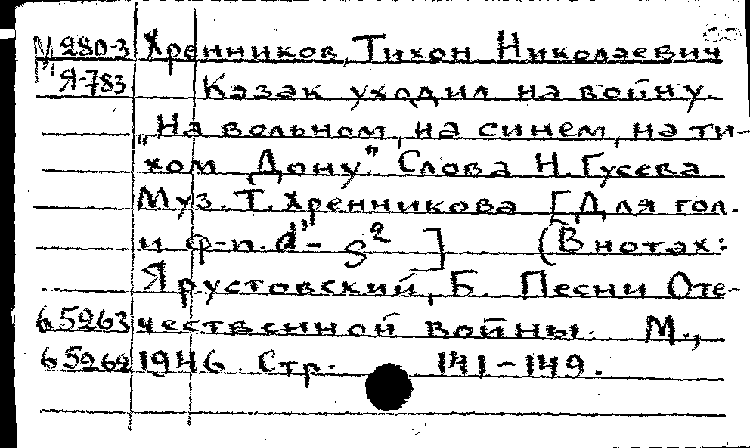 М 280-3 Хренников, Тихон Николаевич
Я-783 Казак уходил на войну.
„На вольном, на синем, на ти-
хом Дону". Слова Н. Гусева
Муз. Т. Хренникова [Для гол.
и ф-п. d'- g²] (В нотах:
Ярустовский, Б. Песни Оте-
65263 чественной войны. М.,
65262 1946 Стр. 141-149.